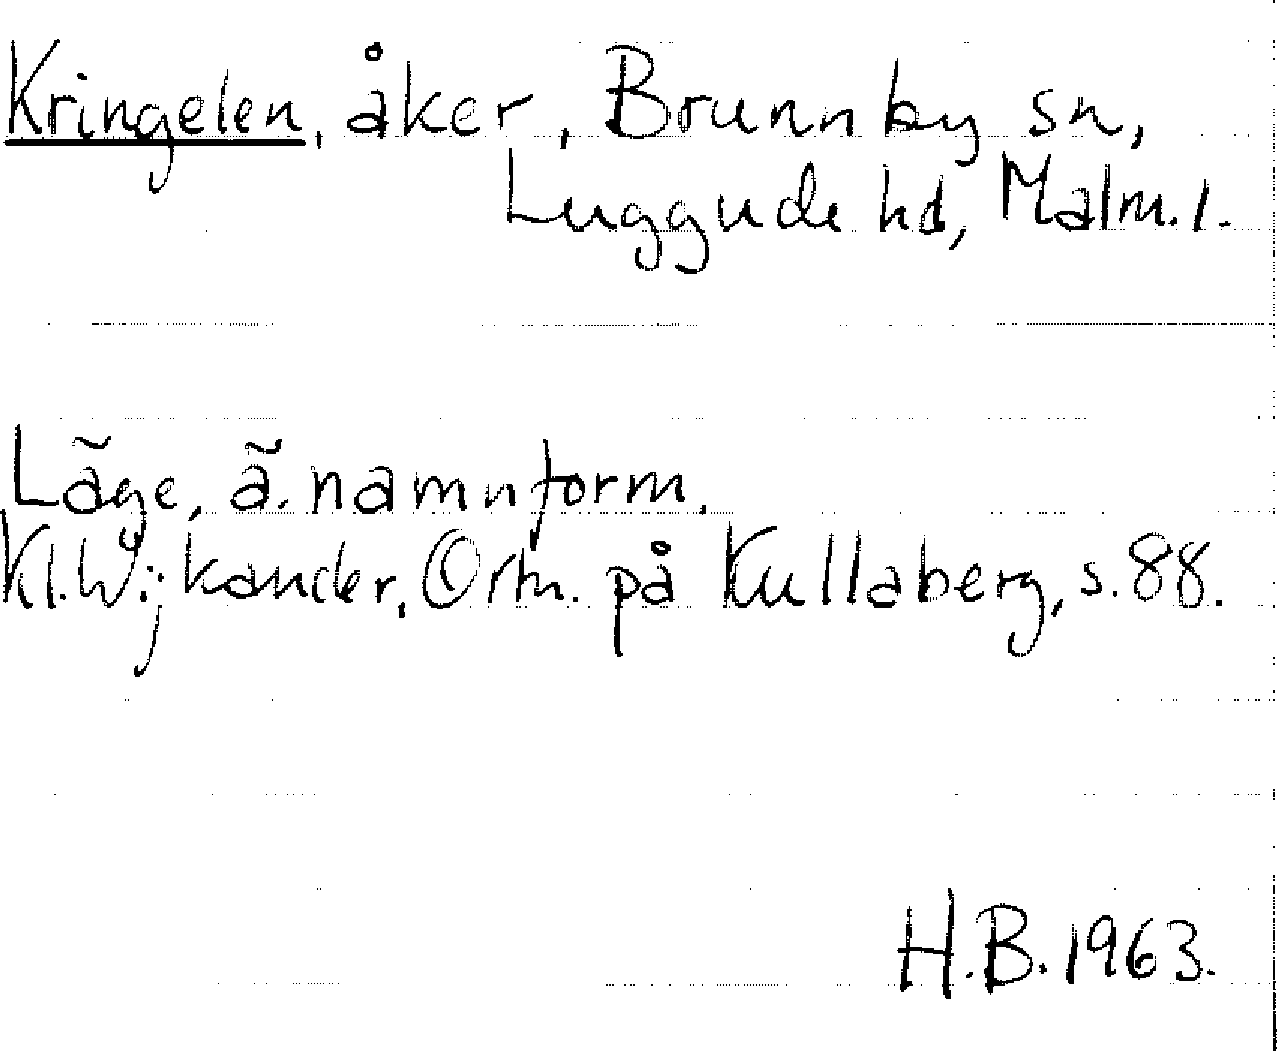 Kringelen, åker, Brunnby sn,
Luggude hd, Malm. l.
Läge, ä. namnform.
Kl. Wijkander, Ortn. på Kullaberg, s. 88.
H.B. 1963.